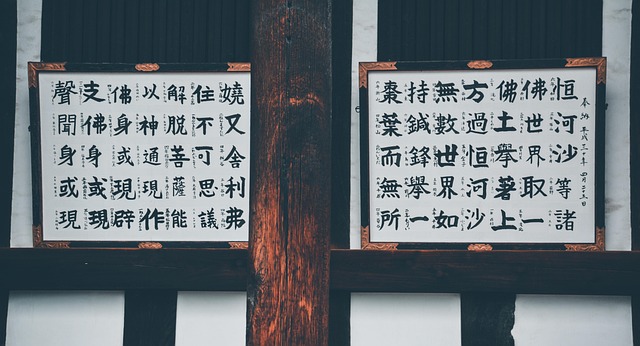 奉納 平成三十年 四月
恒河沙等諸
佛世界取一
佛土擧著上
方過恒河沙
無數世界如
持鍼鋒擧一
棗葉而無所
嬈又舍利弗
住不可思議
解脱菩薩能
以神通現作
佛身或現辟
支佛身或現
聲聞身或現